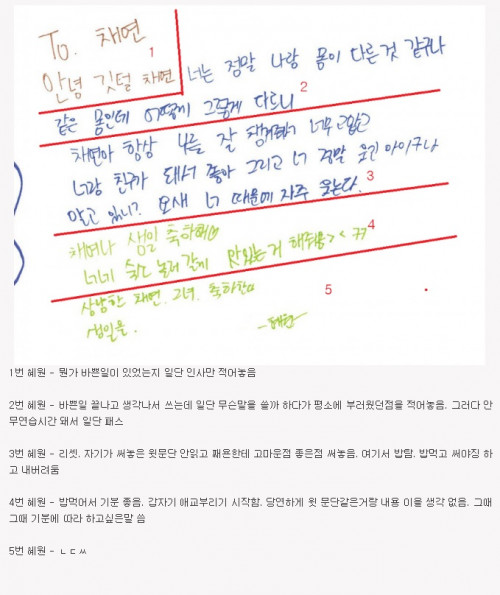 To. 채연
1
안녕 깃털 채연 너는 정말 나랑 몸이 다른 것 같구나
같은 몸인데 어떻게 그렇게 다르니 2
채연아 항상 나를 잘 챙겨줘서 너무 고맙고
너랑 친구가 돼서 좋아 그리고 너 정말 웃긴 아이구나
알고 있니? 요새 너 때문에 자주 웃는다. 3
채여나 생일 축하해 4
너네 숙소 놀러갈게 맛있는거 해줘용><
채연. 그녀. 축하한다 5
생일을.
-혜원
1번 혜원 - 뭔가 바쁜일이 있었는지 일단 인사만 적어놓음
2번 혜원 - 바쁜일 끝나고 생각나서 쓰는데 일단 무슨말을 쓸까 하다가 평소에 부러웠던점을 적어놓음. 그러다 안
무연습시간 돼서 일단 패스
3번 혜원 - 리셋. 자기가 써놓은 윗문단 안읽고 패욘한테 고마운점 좋은점 써놓음. 여기서 밥탐. 밥먹고 써야징 하
고 내버려둠
4번 혜원 - 밥먹어서 기분 좋음. 갑자기 애교부리기 시작함. 당연하게 윗 문단같은거랑 내용 이을 생각 없음. 그때
그때 기분에 따라 하고싶은말 씀
5번 혜원 - ㄴㄷㅆ